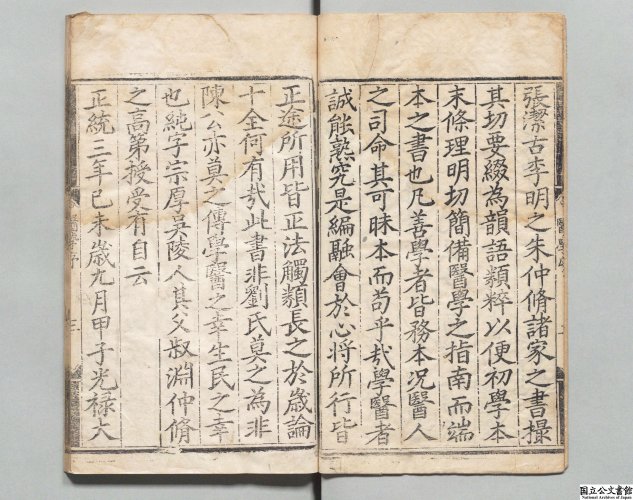 張潔古李明之朱仲脩諸家之書撮
其切要綴為韻語類粹以便初學本
末條理明切簡備醫學之指南而端
本之書也凡善學者皆務本况醫人
之司命其可昧本而苟乎㢤學醫者
誠能熟究是編融會於心將所行皆
正途所用皆正法觸類長之於歲論
十全何有㢤此書非劉氏莫之為非
陳公亦莫之傳學醫之幸生民之幸
也純字宗厚吴陵人其父叔淵仲脩
之高第授受有自云
正統三年己未歲九月甲子光禄大
醫學序
三
国立公文書館
National Archives of Japan